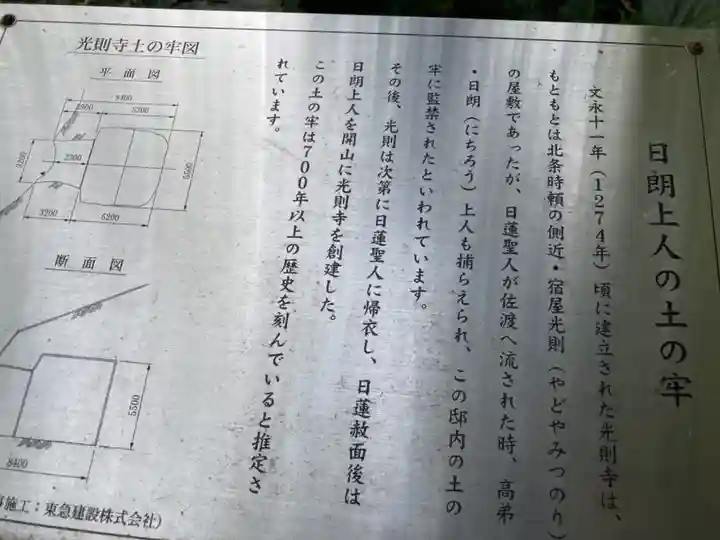 日朗上人の土の牢
文永十一年(1274年)頃に建立された光則寺は、
もともとは北条時頼の側近・宿屋光則(やどやみつのり)
の屋敷であったが、日蓮聖人が佐渡へ流された時、高弟
・日朗(にちろう)上人も捕らえられ、この邸内の土の
牢に監禁されたといわれています。
その後、光則は次第に日蓮聖人に帰衣し、日蓮赦面後は
日朗上人を開山に光則寺を創建した。
この土の牢は700年以上の歴史を刻んでいると推定さ
れています。
光則寺土の牢図
平面図
8400
5200
2300
5500
3200
6200
断面図
5500
8400
施工:東急建設株式会社)